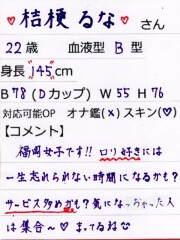 桔梗 るな ♡ さん
22歳 血液型 B 型
身長 "145"cm
B78(Dカップ) W55 H76
対応可能OP オナ鑑(×)スキン(♡)
【コメント】
福岡女子です!! ロリ好きには
一生忘れられない時間になるかも?
サービス多めかも? 気になっちゃった人
は集合〜♡ まってるね